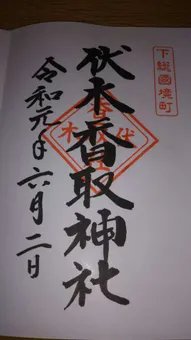 下総國境町
伏木香取神社
令和元年六月二日